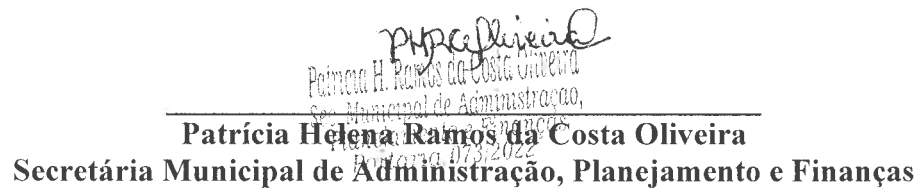 PHRCOliveira
Patricia H. Ramos da Costa Oliveira
Sec. Municipal de Administração,
Planejamento e Finanças
Portaria 073/2022
Patrícia Helena Ramos da Costa Oliveira
Secretária Municipal de Administração, Planejamento e Finanças